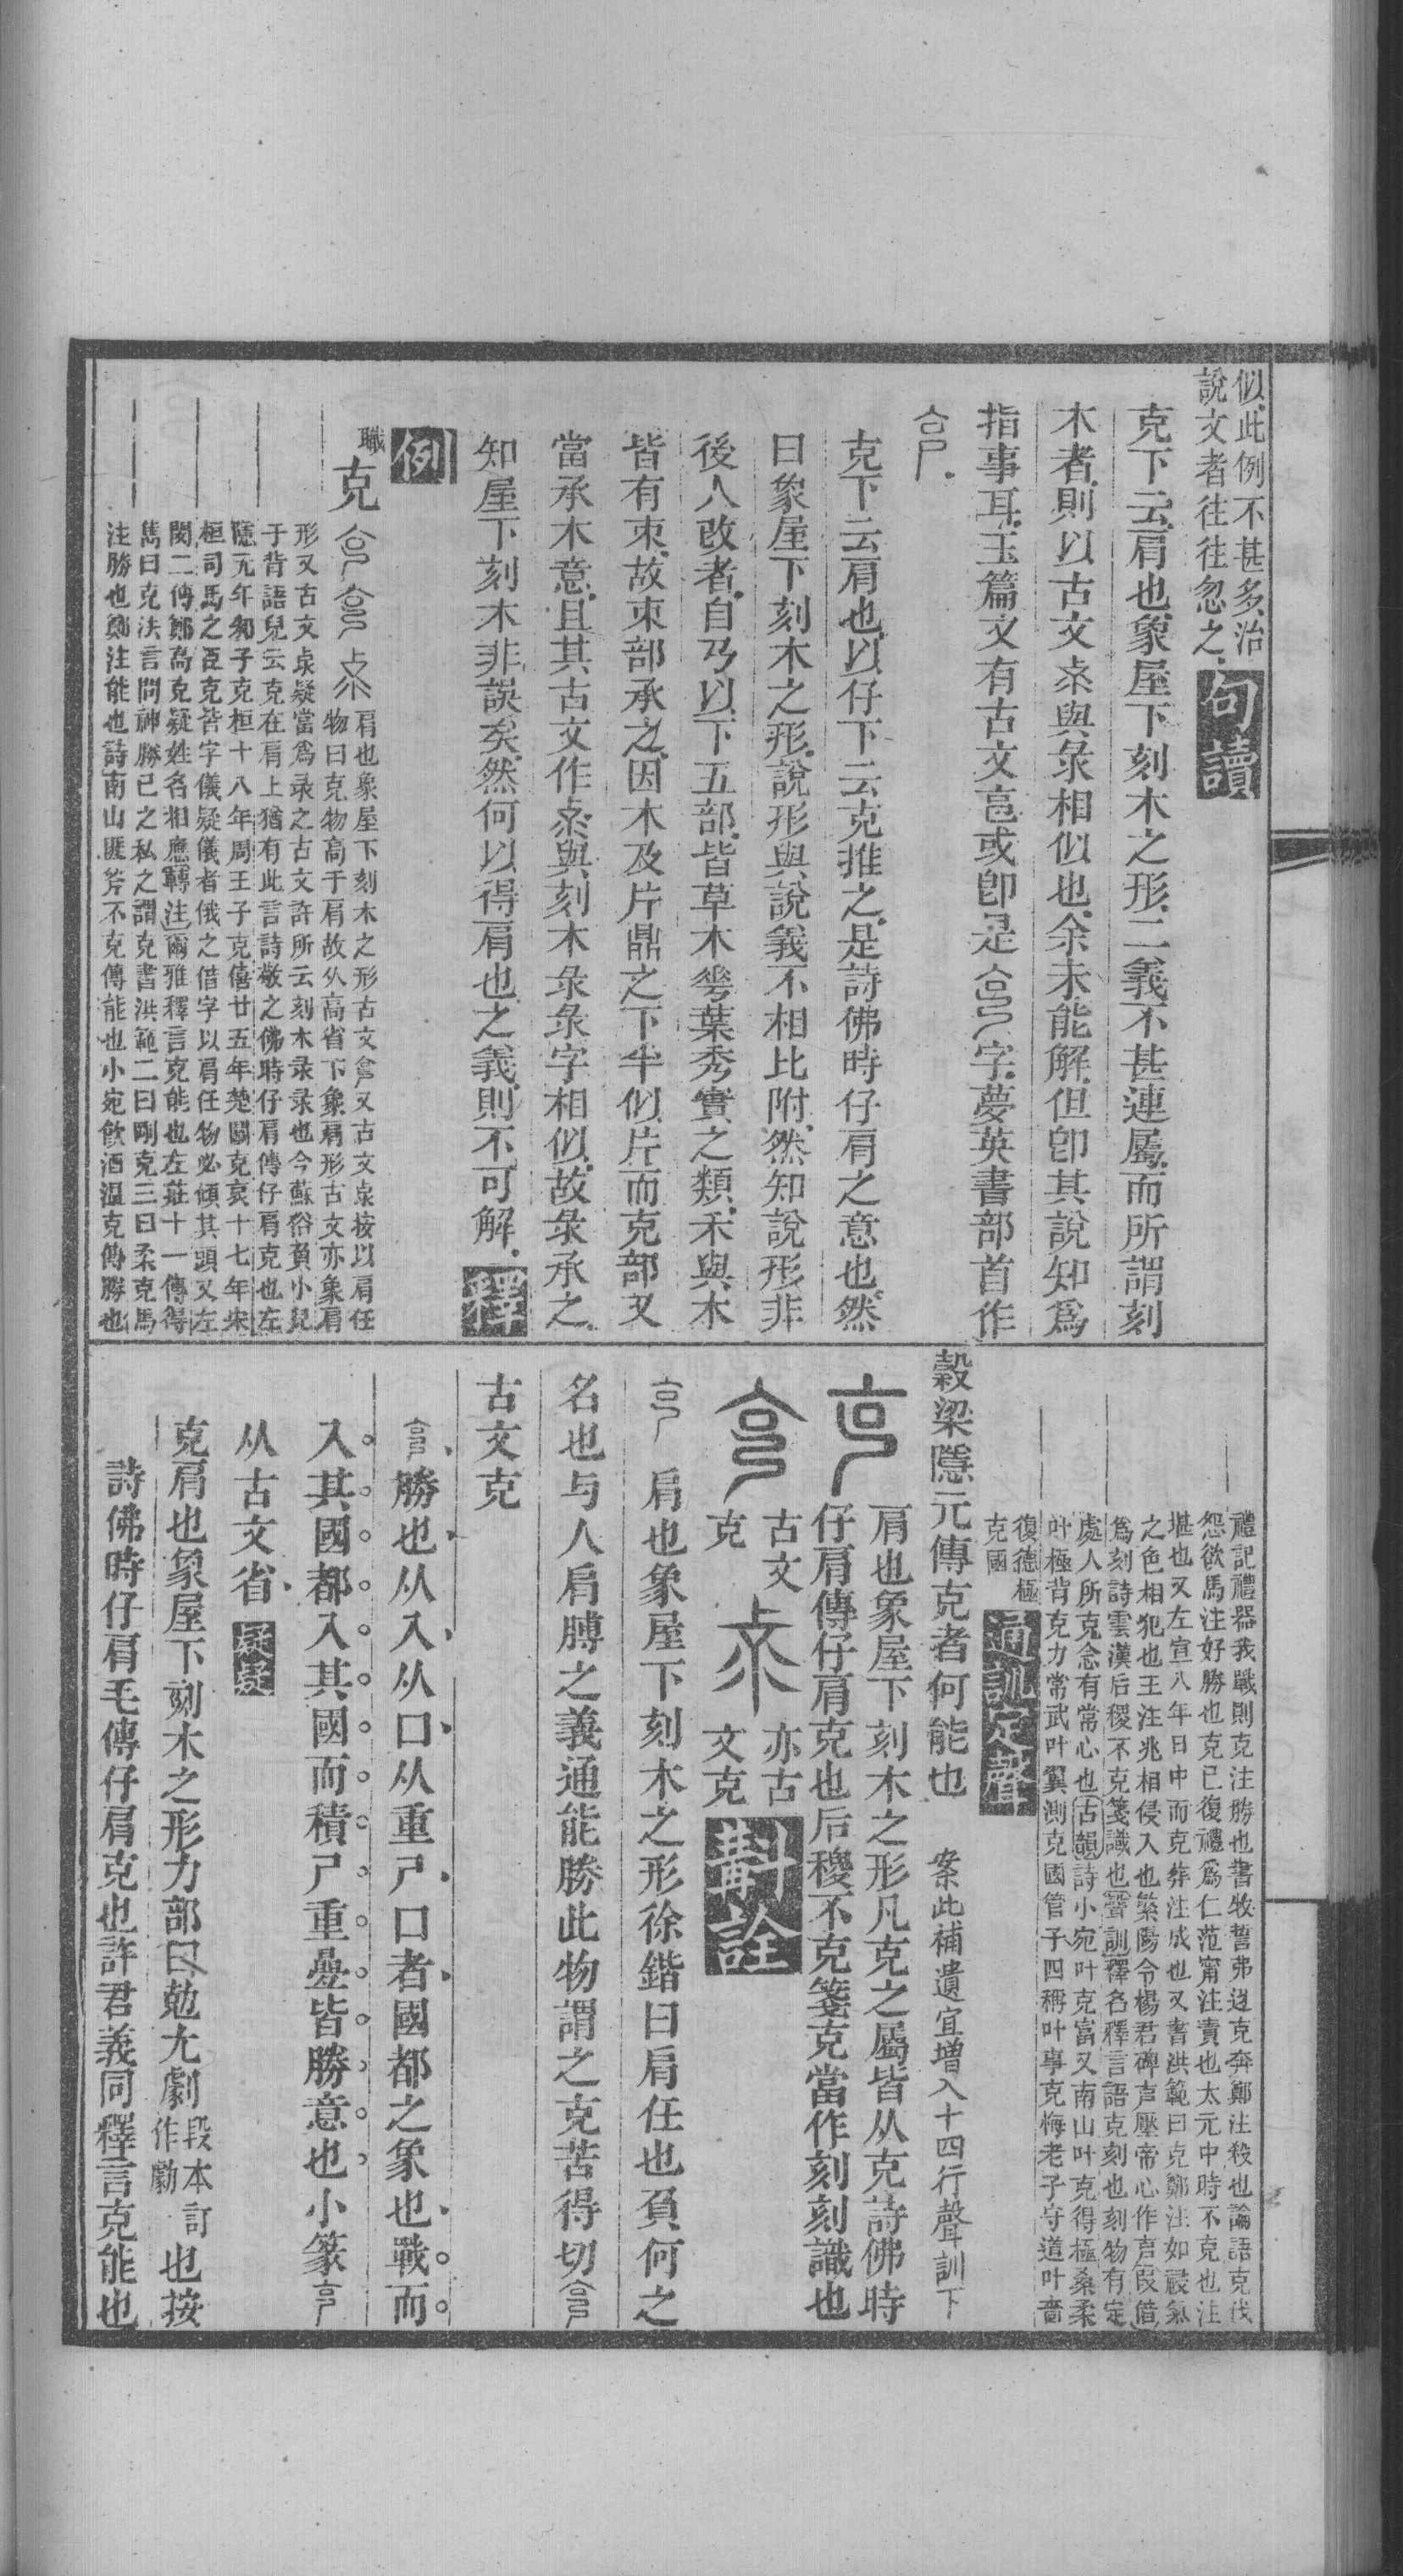 似此例不甚多治
說文者往往忽之
句讀
克下云肩也象屋下刻木之形二義不甚連屬而所謂刻
木者則以古文與彔相似也余未能解但卽其說知爲
指事耳玉篇又有古文亯或卽是字夢英書部首作
克下云肩也以仔下云克推之是詩佛時仔肩之意也然
曰象屋下刻木之形說形與說義不相比附然知說形非
後人改者自乃以下五部皆草木㝵葉秀實之類禾與木
皆有朿故朿部承之因木及片鼎之下半似片而克部又
當承木意且其古文作與刻木彔彔字相似故彔承之
知屋下刻木非誤矣然何以得肩也之義則不可解
釋
例
職
克
肩也象屋下刻木之形古文又古文按以肩任
物曰克物高于肩故从高省下象肩形古文亦象肩
形又古文疑當爲彔之古文許所云刻木彔彔也今蘇俗負小兒
于背語兒云克在肩上猶有此言詩敬之佛時仔肩傳仔肩克也左
隱元年邾子克桓十八年周王子克僖廿五年楚鬬克哀十七年宋
桓司馬之臣克皆字儀疑儀者俄之借字以肩任物必傾其頭又左
閔二傳鄭高克疑姓名相應轉注爾雅釋言克能也左莊十一傳得
儁曰克法言問神勝己之私之謂克書洪範二曰剛克三曰柔克馬
注勝也鄭注能也詩南山匪斧不克傳能也小宛飮酒溫克傳勝也
禮記禮器我戰則克注勝也書牧誓弗迓克奔鄭注殺也論語克伐
怨欲馬注好勝也克己復禮爲仁范甯注責也太元中時不克也注
堪也又左宣八年日中而克葬注成也又書洪範曰克鄭注如祲氣
之色相犯也王注兆相侵入也繁陽令楊君碑声壓帝心作克叚借
爲刻詩雲漢后稷不克箋識也聲訓釋名釋言語克刻也刻物有定
處人所克念有常心也古韻詩小宛叶克富又南山叶克得極桑柔
叶極背克力常武叶翼測克國管子四稱叶事克悔老子守道叶嗇
復德極
克國
通訓定聲
穀梁隱元傳克者何能也 案此補遺宜增入十四行聲訓下
肩也象屋下刻木之形凡克之屬皆从克詩佛時
仔肩傳仔肩克也后稷不克箋克當作刻刻識也
古文
克
亦古
文克
斠詮
肩也象屋下刻木之形徐鍇曰肩任也負何之
名也与人肩膊之義通能勝此物謂之克苦得切
古文克
勝也从入从口从重𠃜口者國都之象也戰而
入其國都入其國而積𠃜重疊皆勝意也小篆
从古文省
疑疑
克肩也象屋下刻木之形力部曰勊尤劇
段本訂
作勮
也按
詩佛時仔肩毛傳仔肩克也許君義同釋言克能也